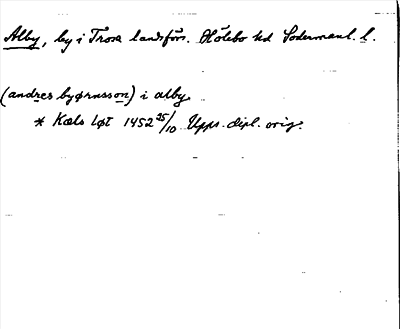 Alby, by i Trosa landsförs. Hölebo hd Södermanl. l.
(andres byørnsson) i alby
* Kæls løt 1452 25/10 Upps. dipl. orig.